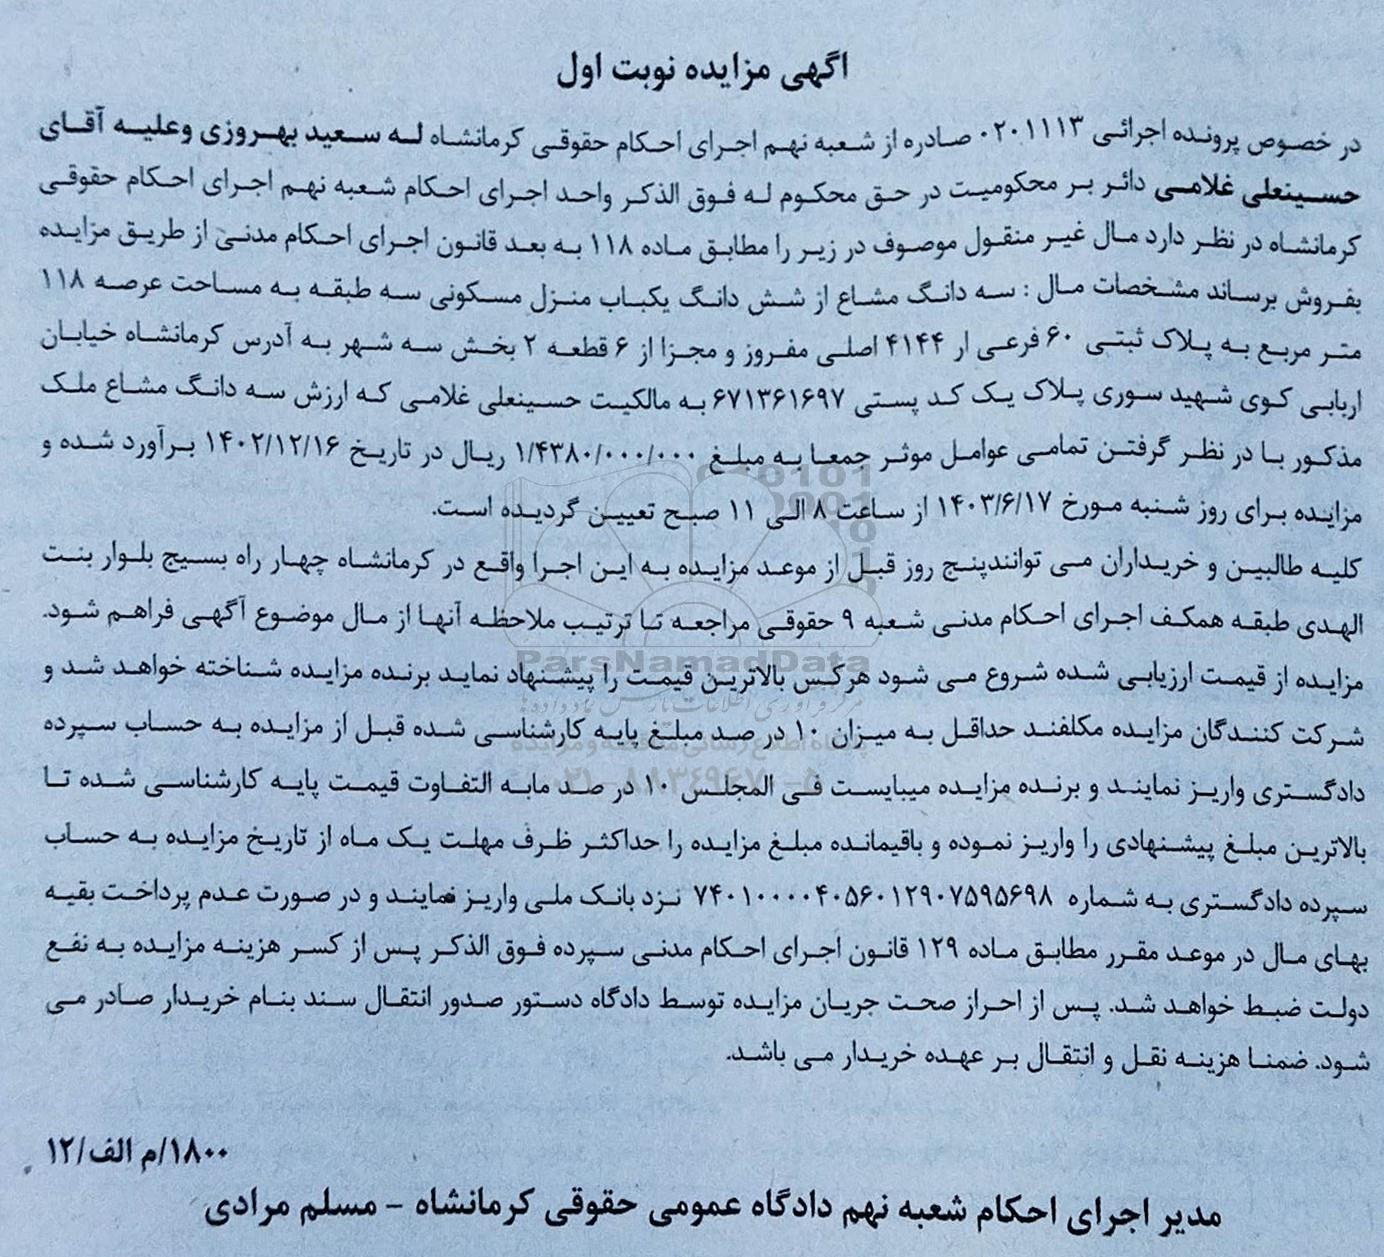 اگهی مزایده نوبت اول
در خصوص پرونده اجرائی ۰۲۰۱۱۱۳ صادره از شعبه نهم اجرای احکام حقوقی کرمانشاه له سعید بهروزی وعلیه آقای
حسینعلی غلامی دائر بر محکومیت در حق محکوم له فوق الذکر واحد اجرای احکام شعبه نهم اجرای احکام حقوقی
کرمانشاه در نظر دارد مال غیر منقول موصوف در زیر را مطابق ماده ۱۱۸ به بعد قانون اجرای احکام مدنی از طریق مزایده
بفروش برساند مشخصات مال : سه دانگ مشاع از شش دانگ یکباب منزل مسکونی سه طبقه به مساحت عرصه ۱۱۸
متر مربع به پلاک ثبتی ۶۰ فرعی ار ۴۱۴۴ اصلی مفروز و مجزا از ۶ قطعه ۲ بخش سه شهر به آدرس کرمانشاه خیابان
اربابی کوی شهید سوری پلاک یک کد پستی ۶۷۱۳۶۱۶۹۷ به مالکیت حسینعلی غلامی که ارزش سه دانگ مشاع ملک
مذکور با در نظر گرفتن تمامی عوامل موثر جمعا به مبلغ ۱/۴۳۸۰/۰۰۰/۰۰۰ ریال در تاریخ ۱۴۰۲/۱۲/۱۶ برآورد شده و
مزایده برای روز شنبه مورخ ۱۴۰۳/۶/۱۷ از ساعت ۸ الی ۱۱ صبح تعیین گردیده است.
کلیه طالبین و خریداران می توانندپنج روز قبل از موعد مزایده به این اجرا واقع در کرمانشاه چهار راه بسیج بلوار بنت
الهدی طبقه همکف اجرای احکام مدنی شعبه ۹ حقوقی مراجعه تا ترتیب ملاحظه آنها از مال موضوع آگهی فراهم شود.
مزایده از قیمت ارزیابی شده شروع می شود هرکس بالاترین قیمت را پیشنهاد نماید برنده مزایده شناخته خواهد شد و
شرکت کنندگان مزایده مکلفند حداقل به میزان ۱۰ در صد مبلغ پایه کارشناسی شده قبل از مزایده به حساب سپرده
دادگستری واریز نمایند و برنده مزایده میبایست فی المجلس ۱۰ در صد مابه التفاوت قیمت پایه کارشناسی شده تا
بالاترین مبلغ پیشنهادی را واریز نموده و باقیمانده مبلغ مزایده را حداکثر ظرف مهلت یک ماه از تاریخ مزایده به حساب
سپرده دادگستری به شماره ۷۴۰۱۰۰۰۰۴۰۵۶۰۱۲۹۰۷۵۹۵۶۹۸ نزد بانک ملی واریز نمایند و در صورت عدم پرداخت بقیه
بهای مال در موعد مقرر مطابق ماده ۱۲۹ قانون اجرای احکام مدنی سپرده فوق الذکر پس از کسر هزینه مزایده به نفع
دولت ضبط خواهد شد. پس از احراز صحت جریان مزایده توسط دادگاه دستور صدور انتقال سند بنام خریدار صادر می
شود. ضمنا هزینه نقل و انتقال بر عهده خریدار می باشد.
۱۸۰۰/م الف/۱۲
مدیر اجرای احکام شعبه نهم دادگاه عمومی حقوقی کرمانشاه - مسلم مرادی
ParsNamadData